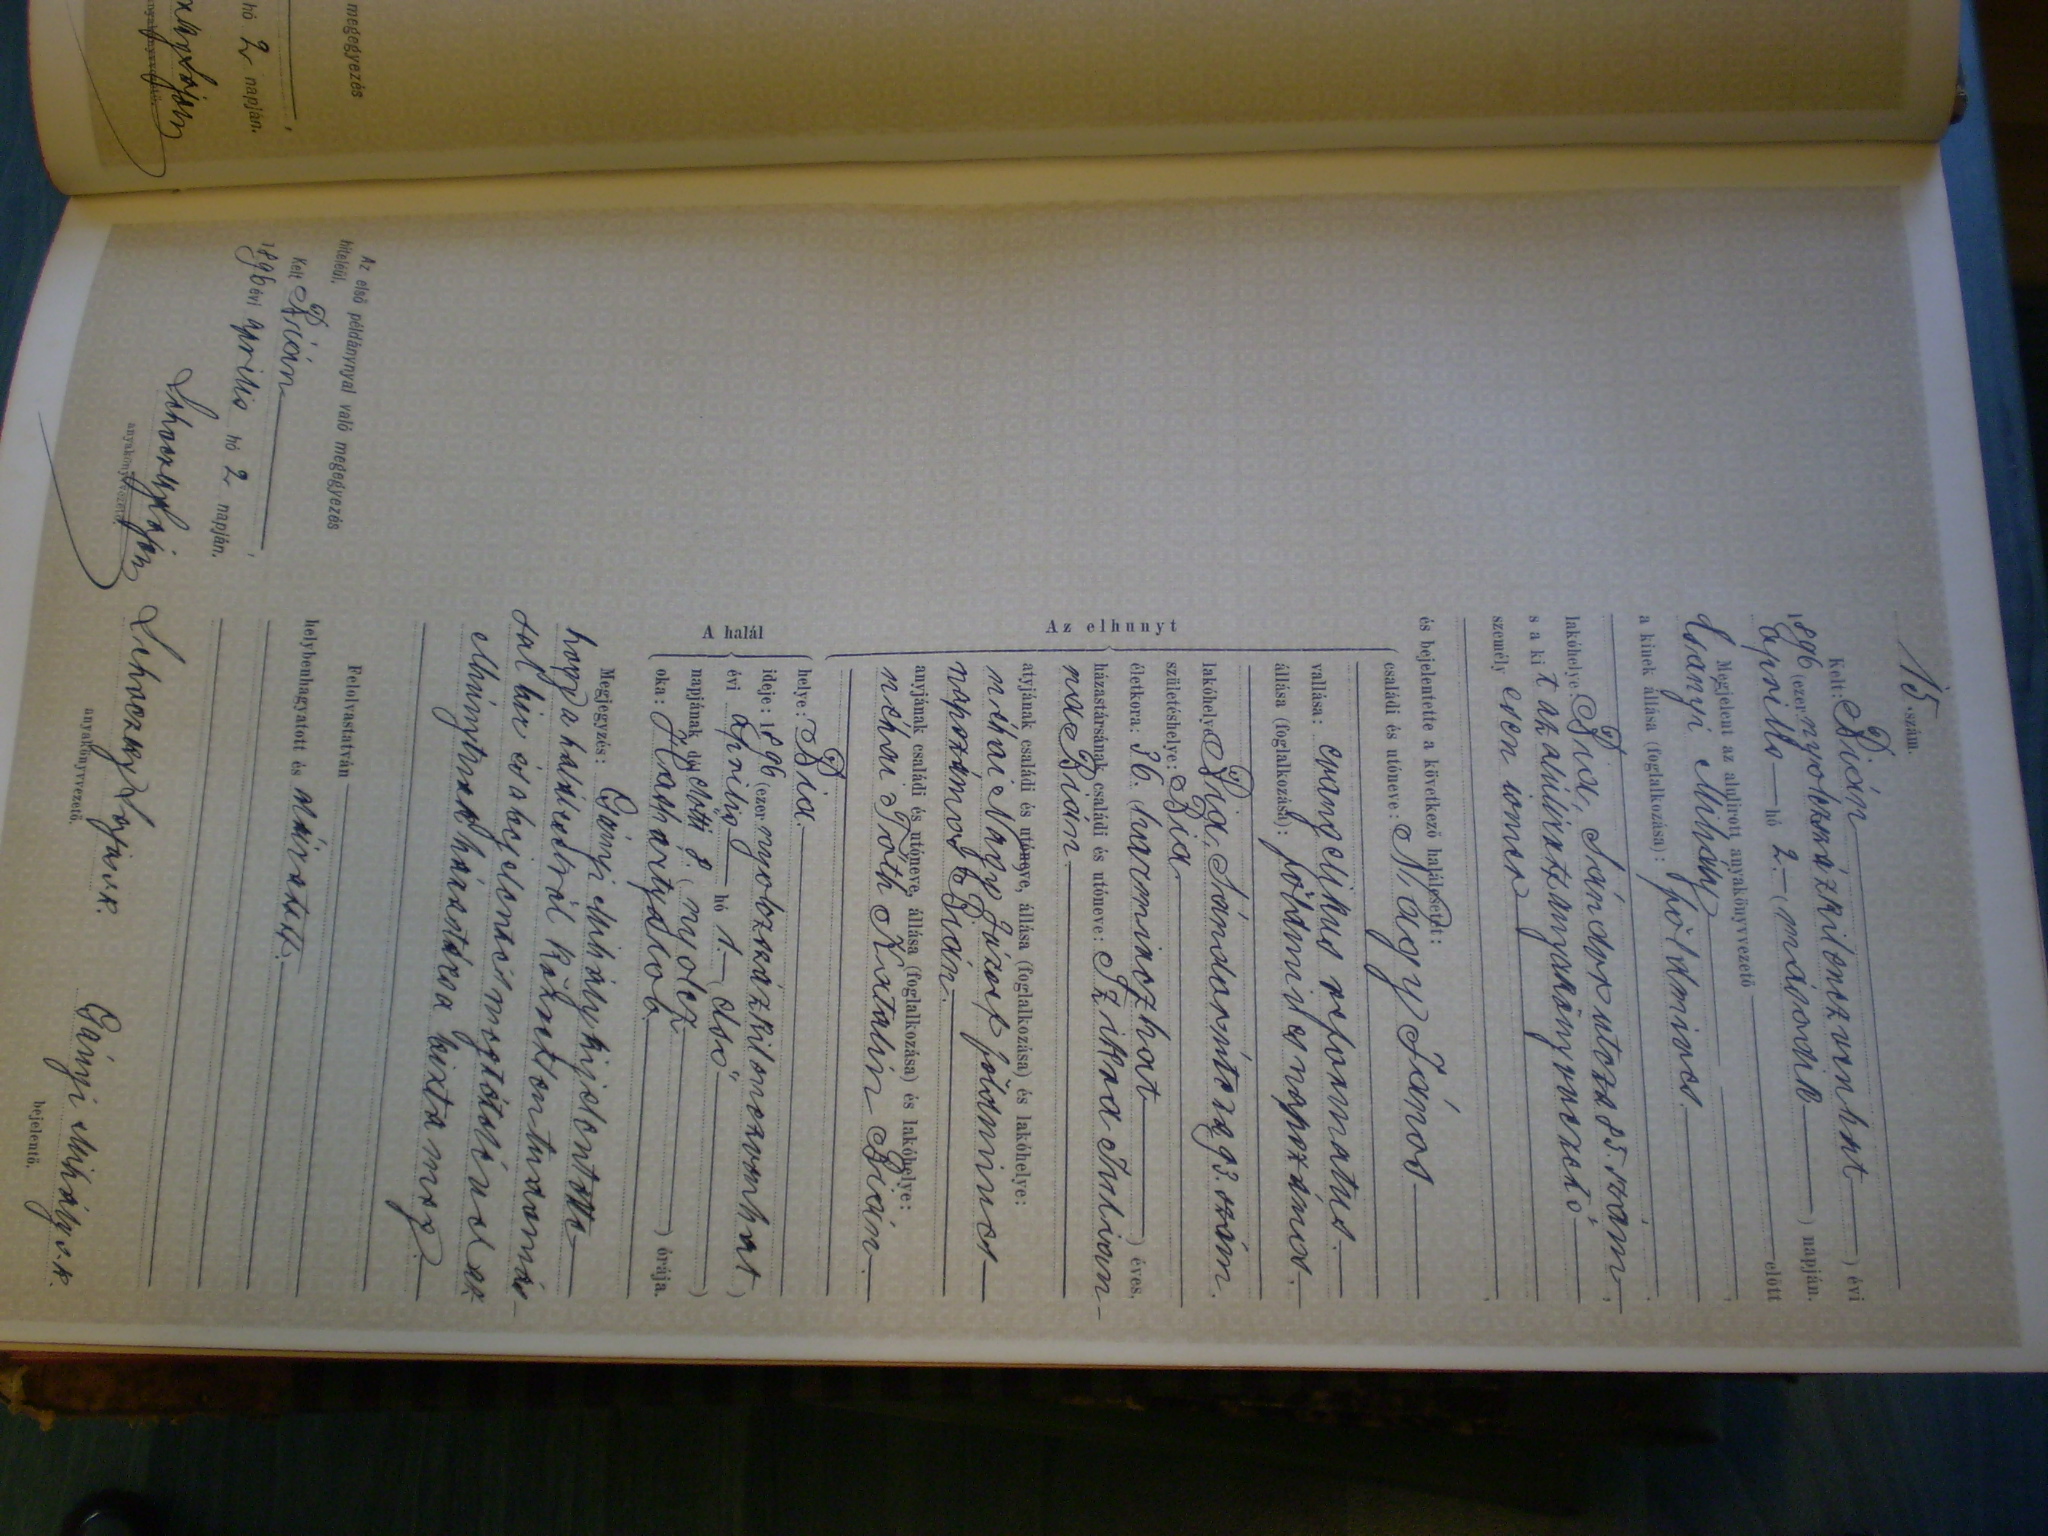 megegyezés
hó 2 napján.
anyakönyvvezető.
15. szám.
Kelt: Bián
1896 (ezer nyolczszázkilenczvenhat) évi
április hó 2. (második) napján.
Megjelent az alulirott anyakönyvvezető előtt
Gányi Mihály,
a kinek állása (foglalkozása): földmives.
lakóhelye Bia, Sándor utcza 85. szám,
s a kit alulirott anyakönyvvezető
személyesen ismer,
és bejelentette a következő halálesetet:
Az elhunyt
családi és utóneve: Nagy János
vallása: evangelikus reformatus.
állása (foglalkozása): földmives napszámos.
lakóhelye Bia, Sándor utcza 93. szám.
születéshelye: Bia
életkora: 36. (harminczhat) éves,
házastársának családi és utóneve: Julian-
na Bián
atyjának családi és utóneve, állása (foglalkozása) és lakóhelye:
néhai Nagy József földmives
napszámos Bián.
anyjának családi és utóneve, állása (foglalkozása) és lakóhelye:
néhai Tóth Katalin Bián.
A halál
helye: Bia.
ideje: 1896 (ezer nyolczszázkilenczvenhat)
évi április hó 1. (első)
napjának délelőtti 8. (nyolcz) órája.
oka:
Megjegyzés: Gányi Mihály kijelentette
hogy a halálesetről közvetlen tudomás-
sal bir és a bejelentés megtételével az
elhúnytnak házastársa bizta meg.
Felolvastatván
helybenhagyatott és aláiratott.
anyakönyvvezető.
Gányi Mihály s.k.
bejelentő.
Az első példánynyal való megegyezés
hiteléül,
Kelt Bián,
1896 évi április hó 2 napján.
anyakönyvvezető.